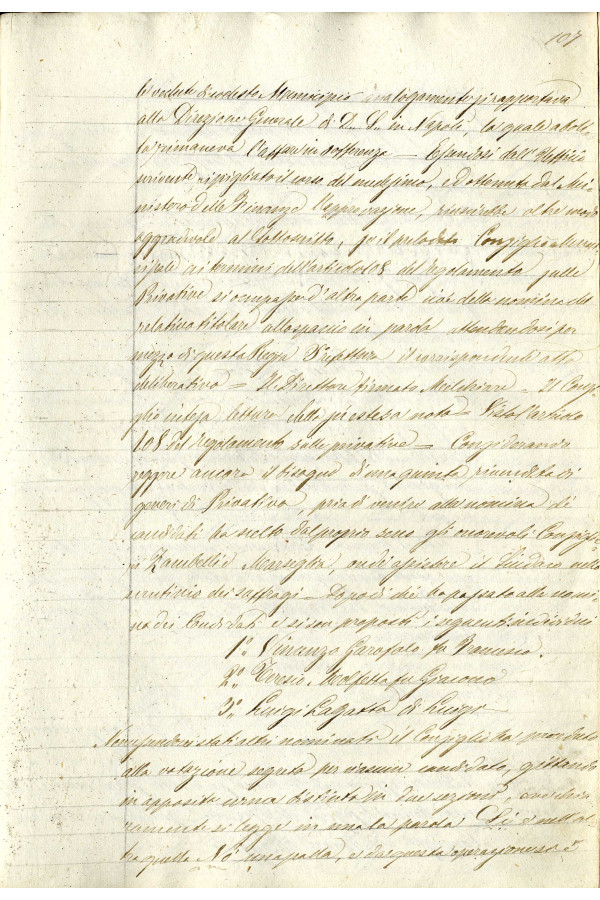 107
le vedute di codesto Municipio analogamente si rapportava
alla Direzione Generale di D. S. in Napoli, la quale
rimaneva l'affare in sofferenza — Essendosi dall'Uffizio
scrivente ripigliato il corso del medesimo, ed ottenuta dal Mi-
nistero delle Finanze l'approvazione, riuscirebbe oltre modo
aggradevole al Sottoscritto, se il prelodato Consiglio Muni-
cipale ai termini dell'articolo 108 del regolamento sulle
Privative si occupasse d'altra parte della nomina del
relativo titolare allo spaccio in parola attendendosi per
mezzo di questa Regia Prefettura il corrispondente atto
deliberativo = Il Direttore firmato Melchiore = Il Consi-
glio intesa lettura della prestesa nota = Visto l'articolo
108 del regolamento sulle privative = Considerando
essere ancora il bisogno di una quinta rivendita di
generi di Privativa, pria di venire alla nomina dei
candidati ha scelto dal proprio seno gli onorevoli Consiglie-
ri Zambelli e Marseglia, onde assistere il Sindaco nello
scrutinio dei suffragi — Dopo di che ha passato alla nomi-
na dei Candidati e si son proposti i seguenti individui
1.º Vincenzo Garofalo fu Francesco.
2.º Teresa Molfetta fu Giacomo
3.º Luigi Lagatta di Luigi
Non essendovi stati altri nominati il Consiglio ha proceduto
alla votazione segreta per ciascun candidato, gittando
in apposita urna distinta in due sezioni, ove chia-
ramente si legge in una la parola Sì e nell'al-
tra quella Nò una palla, e da questa operazione si è